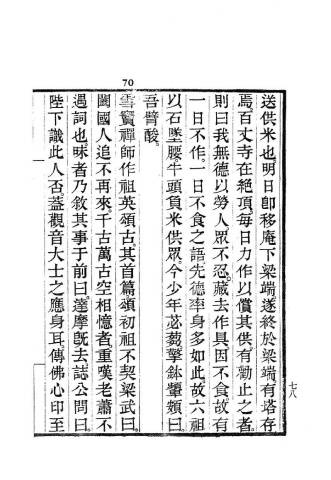 70
送供米也明日卽移庵下梁端遂終於梁端有塔存
焉百丈寺在絶頂每日力作以償其供有勸止之者
則曰我無德以勞人眾不忍藏去作具因不食故有
一日不作一日不食之語先德率身多如此故六祖
以石墜腰牛頭負米供眾今少年苾蒭擎鉢顰頞曰
吾臂酸。
雪竇禪師作祖英頌古其首篇頌初祖不契梁武曰
闔國人追不再來千古萬古空相憶者重嘆老蕭不
遇詞也昧者乃敘其事于前曰達摩旣去誌公問曰
陛下識此人否葢觀音大士之應身耳傳佛心印至
七八